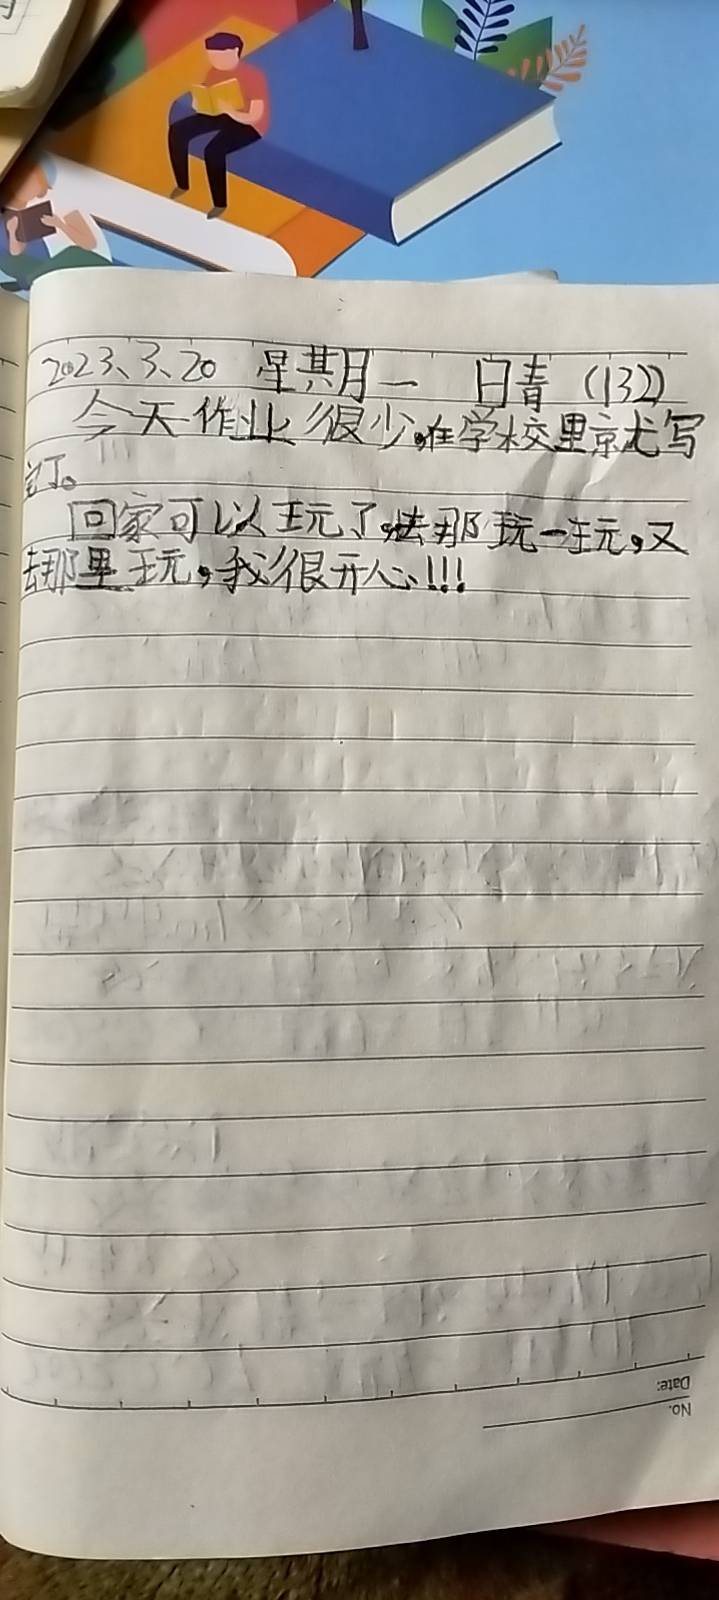 2023、3、20 星期一 日青 (132)
今天作业很少,在学校里就写
完了。
回家可以玩了,去那玩一玩,又
去那里玩,我很开心!!!
Date:
No.